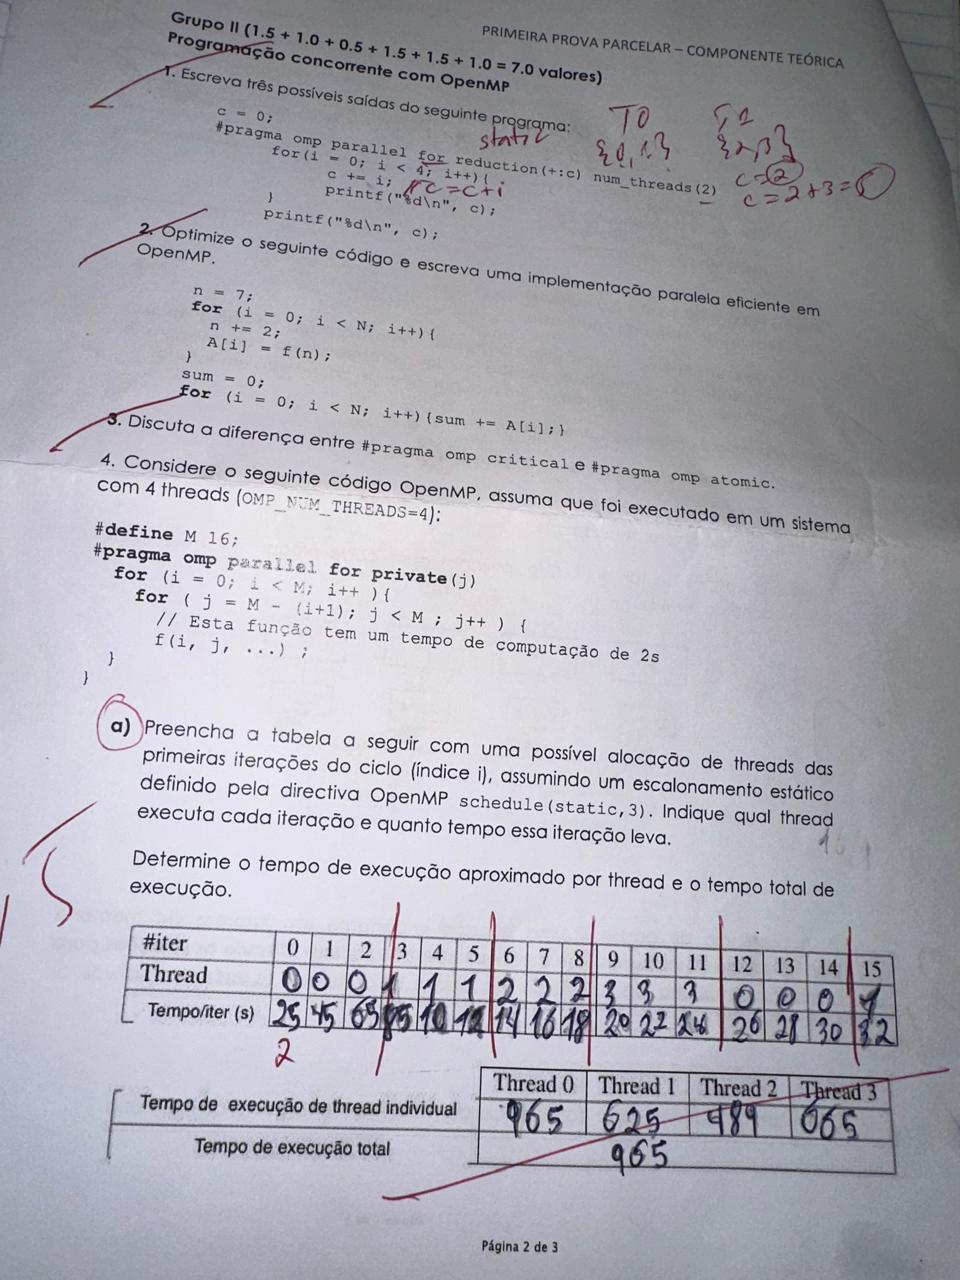 PRIMEIRA PROVA PARCELAR – COMPONENTE TEÓRICA
Grupo II (1.5 + 1.0 + 0.5 + 1.5 + 1.5 + 1.0 = 7.0 valores)
Programação concorrente com OpenMP
1. Escreva três possíveis saídas do seguinte programa:
static
T0
{0,1}
{2,3}
c = 0;
#pragma omp parallel for reduction(+:c) num_threads(2)
for(i = 0; i < 4; i++){
c += i;
c=c+i
printf("%d\n", c);
}
printf("%d\n", c);
c=2
c=2+3=
2. Optimize o seguinte código e escreva uma implementação paralela eficiente em
OpenMP.
n = 7;
for (i = 0; i < N; i++){
n += 2;
A[i] = f(n);
}
sum = 0;
for (i = 0; i < N; i++){sum += A[i];}
3. Discuta a diferença entre #pragma omp critical e #pragma omp atomic.
4. Considere o seguinte código OpenMP, assuma que foi executado em um sistema
com 4 threads (OMP_NUM_THREADS=4):
#define M 16;
#pragma omp parallel for private(j)
for (i = 0; i < M; i++ ){
for ( j = M - (i+1); j < M ; j++ ) {
// Esta função tem um tempo de computação de 2s
f(i, j, ...) ;
}
}
a) Preencha a tabela a seguir com uma possível alocação de threads das
primeiras iterações do ciclo (índice i), assumindo um escalonamento estático
definido pela directiva OpenMP schedule(static,3). Indique qual thread
executa cada iteração e quanto tempo essa iteração leva.
Determine o tempo de execução aproximado por thread e o tempo total de
execução.
#iter 0 1 2 3 4 5 6 7 8 9 10 11 12 13 14 15
Thread 0 0 0 1 1 1 2 2 2 3 3 3 0 0 0 1
Tempo/iter (s) 2s 4s 6s 8s 10 12 14 16 18 20 22 24 26 28 30 32
2
Thread 0 Thread 1 Thread 2 Thread 3
Tempo de execução de thread individual 96s 62s 48s 66s
Tempo de execução total 96s
Página 2 de 3